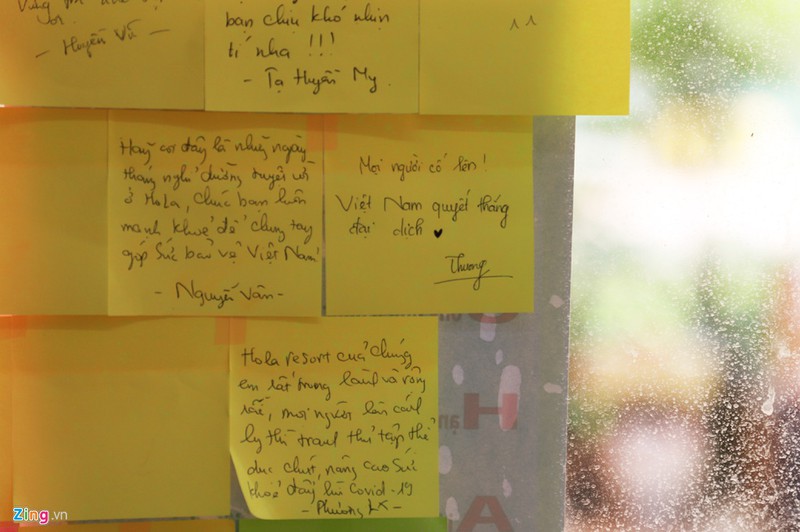 ơi.
- Huyền Vũ -
bạn chịu khó nhịn
tí nha !!!
- Tạ Huyền My
^^
Hãy coi đây là những ngày
tháng nghỉ dưỡng tuyệt vời
ở HoLa, chúc bạn luôn
mạnh khoẻ để chung tay
góp sức bảo vệ Việt Nam!
- Nguyễn Vân -
Mọi người cố lên!
Việt Nam quyết thắng
đại dịch ♥
Thương
Hola resort của chúng
em rất trong lành và rộng
rãi, mọi người lần cách
ly thì tranh thủ tập thể
dục chút, nâng cao sức
khoẻ đẩy lùi Covid-19
- Phương LK -
H
A
Zing.vn